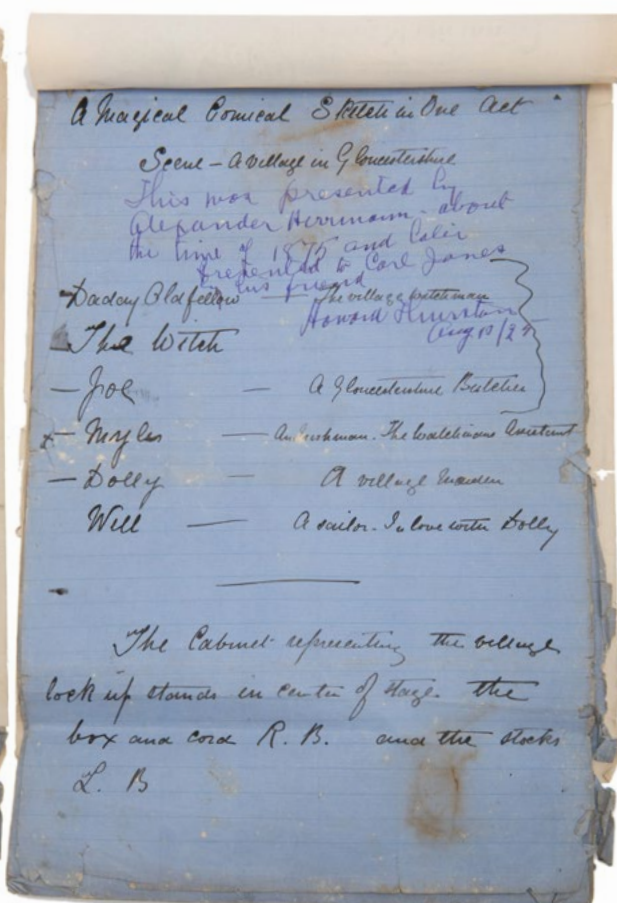 A Magical Comical Sketch in One Act
Scene – A village in Gloucestershire
This was presented by
Alexander Herrmann - about
the time of 1875 and later
presented to Carl Jones
by his friend
Howard Thurston
Aug 13/25
Daddy Oldfellow — The village watchman
The Witch
— Joe — A Gloucestershire Butcher
x — Myles — An Irishman. The Watchmans Assistant
— Dolly — A village maiden
Will — A sailor. In love with Dolly
The Cabinet representing the village
lock up stands in center of stage. the
box and cord R. B. and the stocks
L. B